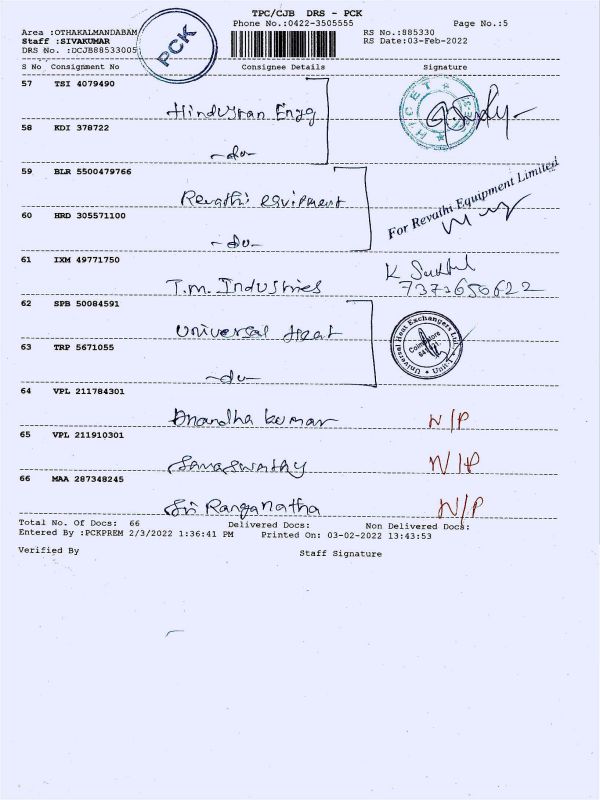 TPC/CJB DRS - PCK
Phone No.:0422-3505555 Page No.:5
Area :OTHAKALMANDABAM RS No.:885330
Staff :SIVAKUMAR RS Date:03-Feb-2022
DRS No. :DCJB88533005
PCK
S No Consignment No Consignee Details Signature
57 TSI 4079490
Hindustan Engg
HICET
58 KDI 378722
-do-
59 BLR 5500479766
Revathi equipment
For Revathi Equipment Limited
60 HRD 305571100
-do-
61 IXM 49771750
K
T.m. Industries 7373650622
62 SPB 50084591
Universal Heat
Universal Heat Exchangers Ltd. Unit I
Coimbatore
63 TRP 5671055
-do-
64 VPL 211784301
Anandha kumar N/P
65 VPL 211910301
Samaswathy N/P
66 MAA 287348245
Sri Ranganatha N/P
Total No. Of Docs: 66 Delivered Docs: Non Delivered Docs:
Entered By :PCKPREM 2/3/2022 1:36:41 PM Printed On: 03-02-2022 13:43:53
Verified By Staff Signature